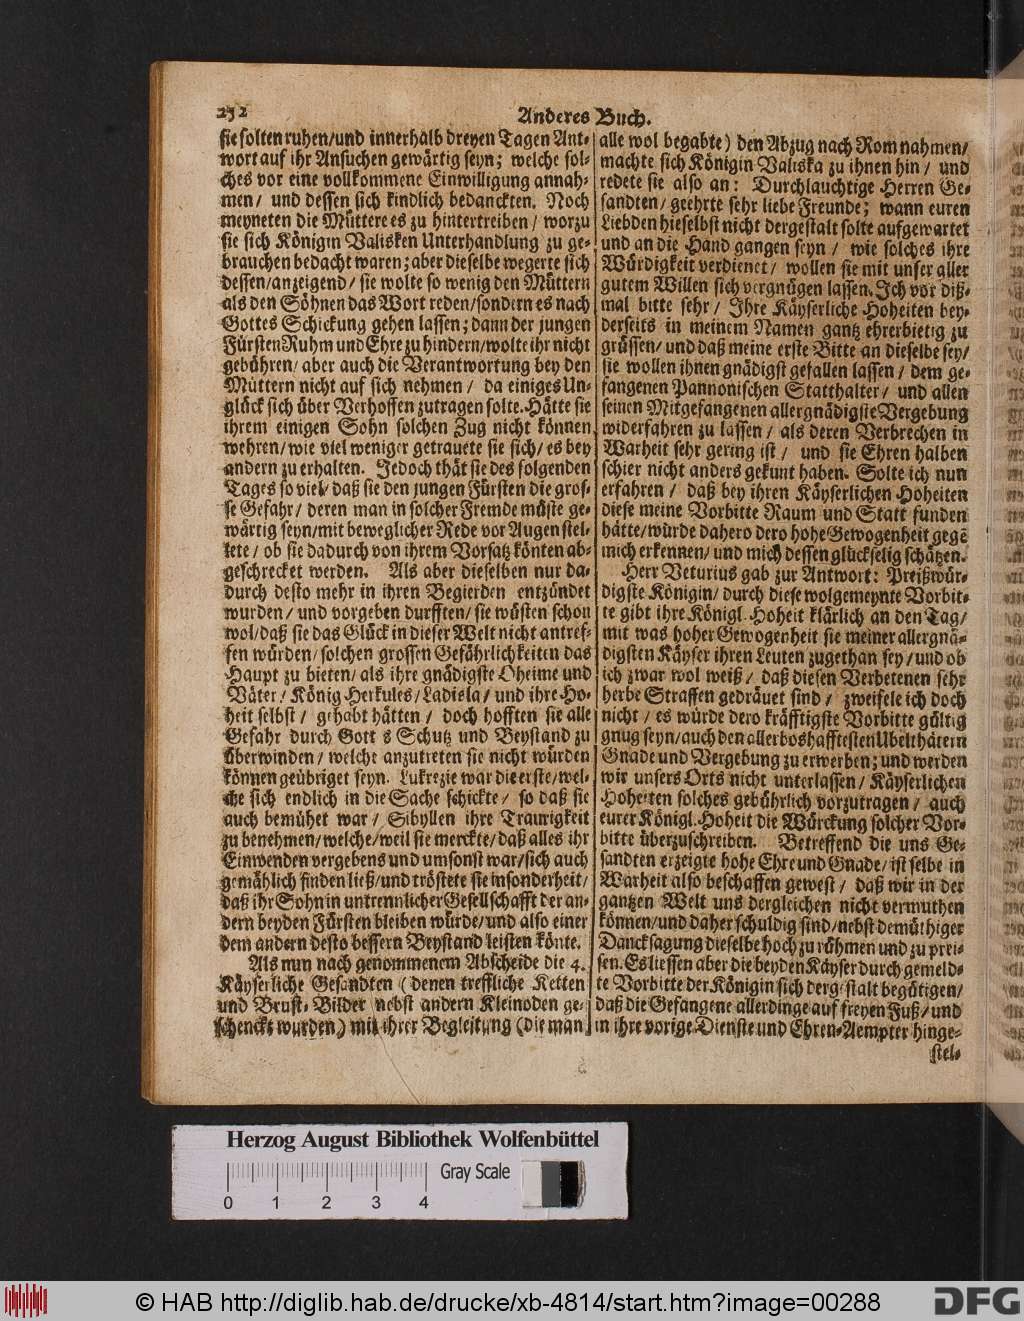 252
Anderes Buch.
sie solten ruhen/und innerhalb dreyen Tagen Ant-
wort auf ihr Ansuchen gewärtig seyn; welche sol-
ches vor eine vollkommene Einwilligung annah-
men/ und dessen sich kindlich bedanckten. Noch
meyneten die Müttere es zu hintertreiben/ worzu
sie sich Königin Valisken Unterhandlung zu ge-
brauchen bedacht waren; aber dieselbe wegerte sich
dessen/anzeigend/ sie wolte so wenig den Müttern
als den Söhnen das Wort reden/sondern es nach
Gottes Schickung gehen lassen; dann der jungen
Fürsten Ruhm und Ehre zu hindern/wolte ihr nicht
gebühren/ aber auch die Verantwortung bey den
Müttern nicht auf sich nehmen/ da einiges Un-
glück sich über Verhoffen zutragen solte. Hätte sie
ihrem einigen Sohn solchen Zug nicht können
wehren/wie viel weniger getrauete sie sich/es bey
andern zu erhalten. Jedoch thät sie des folgenden
Tages so viel/ daß sie den jungen Fürsten die gros-
se Gefahr/ deren man in solcher Fremde müste ge-
wärtig seyn/mit beweglicher Rede vor Augen stel-
lete/ ob sie dadurch von ihrem Vorsatz könten ab-
geschrecket werden. Als aber dieselben nur da-
durch desto mehr in ihren Begierden entzündet
wurden/ und vorgeben durfften/ sie wüsten schon
wol/daß sie das Glück in dieser Welt nicht antref-
fen würden/solchen grossen Gefährlichkeiten das
Haupt zu bieten/als ihre gnädigste Oheime und
Väter/ König Herkules/Ladisla/ und ihre Ho-
heit selbst/ gehabt hätten/ doch hofften sie alle
Gefahr durch Gott s Schutz und Beystand zu
überwinden/ welche anzutreten sie nicht würden
können geübriget seyn. Lukrezie war die erste/wel-
che sich endlich in die Sache schickte/ so daß sie
auch bemühet war/ Sibyllen ihre Traurigkeit
zu benehmen/welche/weil sie merckte/daß alles ihr
Einwenden vergebens und umsonst war/sich auch
gemählich finden ließ/und tröstete sie insonderheit/
daß ihr Sohn in untrennlicher Gesellschafft der an-
dern beyden Fürsten bleiben würde/und also einer
dem andern desto bessern Beystand leisten könte.
Als nun nach genommenem Abscheide die 4.
Käyserliche Gesandten (denen treffliche Ketten
und Brust-Bilder nebst andern Kleinoden ge-
schenckt wurden) mit ihrer Begleitung (die man
alle wol begabte) den Abzug nach Rom nahmen/
machte sich Königin Valiska zu ihnen hin/ und
redete sie also an: Durchlauchtige Herren Ge-
sandten/ geehrte sehr liebe Freunde; wann euren
Liebden hieselbst nicht dergestalt solte aufgewartet
und an die Hand gangen seyn/ wie solches ihre
Würdigkeit verdienet/ wollen sie mit unser aller
gutem Willen sich vergnügen lassen. Ich vor diß-
mal bitte sehr/ Ihre Käyserliche Hoheiten bey-
derseits in meinem Namen gantz ehrerbietig zu
grüssen/und daß meine erste Bitte an dieselbe sey/
sie wollen ihnen gnädigst gefallen lassen/ dem ge-
fangenen Pannonischen Statthalter/ und allen
seinen Mitgefangenen allergnädigste Vergebung
widerfahren zu lassen/ als deren Verbrechen in
Warheit sehr gering ist/ und sie Ehren halben
schier nicht anders gekunt haben. Solte ich nun
erfahren/ daß bey ihren Käyserlichen Hoheiten
diese meine Vorbitte Raum und Statt funden
hätte/würde dahero dero hohe Gewogenheit gegē
mich erkennen/und mich dessen glückselig schätzen.
Herr Veturius gab zur Antwort: Preißwür-
digste Königin/ durch diese wolgemeynte Vorbit-
te gibt ihre Königl. Hoheit klärlich an den Tag/
mit was hoher Gewogenheit sie meiner allergnä-
digsten Käyser ihren Leuten zugethan sey/und ob
ich zwar wol weiß/ daß diesen Verbetenen sehr
herbe Straffen gedräuet sind/ zweifele ich doch
nicht/ es würde dero kräfftigste Vorbitte gültig
gnug seyn/auch den allerboshafftesten Ubelthätern
Gnade und Vergebung zu erwerben; und werden
wir unsers Orts nicht unterlassen/ Käyserlichen
Hoheiten solches gebührlich vorzutragen/ auch
eurer Königl. Hoheit die Würckung solcher Vor-
bitte überzuschreiben. Betreffend die uns Ge-
sandten erzeigte hohe Ehre und Gnade/ ist selbe in
Warheit also beschaffen gewest/ daß wir in der
gantzen Welt uns dergleichen nicht vermuthen
können/und daher schuldig sind/nebst demüthiger
Dancksagung dieselbe hoch zu rühmen und zu prei-
sen. Es liessen aber die beyden Käyser durch gemeld-
te Vorbitte der Königin sich dergestalt begütigen/
daß die Gefangene allerdinge auf freyen Fuß/und
in ihre vorige Dienste und Ehren-Aempter hinge-
stel-
Herzog August Bibliothek Wolfenbüttel
Gray Scale
0 1 2 3 4
© HAB http://diglib.hab.de/drucke/xb-4814/start.htm?image=00288
DFG